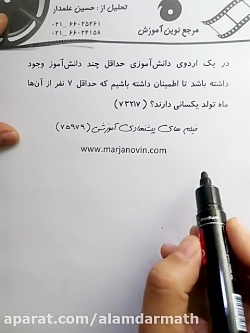 تحلیل از: حسین علمدار
۰۲۱ - ۶۶۰۲۵۲۶۱
۰۲۱ - ۶۶۰۲۴۱۵۸
مرجع نوین آموزش
در یک اردوی دانش‌آموزی حداقل چند دانش‌آموز وجود
داشته باشد تا اطمینان داشته باشیم که حداقل ۷ نفر از آن‌ها
ماه تولد یکسانی دارند؟ (۷۳۲۱۷)
فیلم های پیشنهادی آموزشی (۷۵۹۷۹)
www.marjanovin.com
aparat.com/alamdarmath